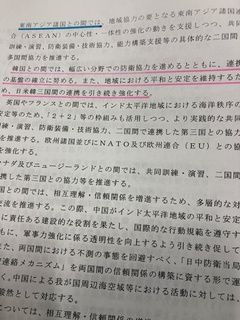 東南アジア諸国との間では、地域協力の要となる東南アジア諸国
合（ASEAN）の中心性・一体性の強化の動きを支援しつつ、共同
訓練・演習、防衛装備・技術協力、能力構築支援等の具体的な二国間
多国間協力を推進する。
韓国との間では、幅広い分野での防衛協力を進めるとともに、連携
の基盤の確立に努める。また、地域における平和と安定を維持するため
、日米韓三国間の連携を引き続き強化する。
英国やフランスとの間では、インド太平洋地域における海洋秩序の
安定等のため、「２＋２」等の枠組みも活用しつつ、より実践的な共同
練・演習、防衛装備・技術協力、二国間で連携した第三国との協力
を推進する。欧州諸国並びにNATO及び欧州連合（EU）との協
を強化する。
カナダ及びニュージーランドとの間では、共同訓練・演習、二国間
携した第三国との協力等を推進する。
国との間では、相互理解・信頼関係を増進するため、多層的な対
流を推進する。この際、中国がインド太平洋地域の平和と安定
に責任ある建設的な役割を果たし、国際的な行動規範を遵守す
も、軍事力強化に係る透明性を向上するよう引き続き促して
また、両国間における不測の事態を回避すべく、「日中防衛当局
連絡メカニズム」を両国間の信頼関係の構築に資する形で運
く。中国による我が国周辺海空域等における活動に対しては、
毅然として対応する。
ついては、相互理解・信頼関係の増進のため、